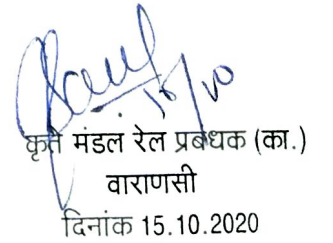 16/10
कृते मंडल रेल प्रबंधक (का.)
वाराणसी
दिनांक 15.10.2020